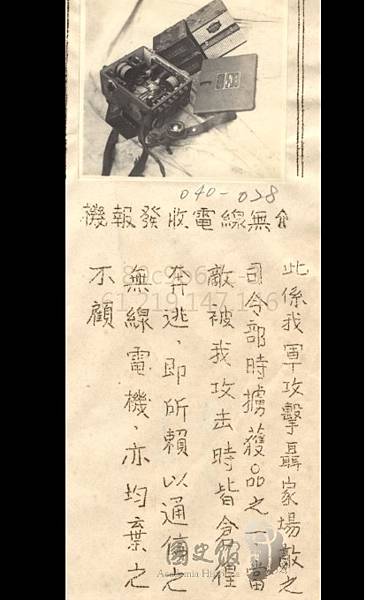 040-028
無線電收發報機
此係我軍攻擊聶家場敵之
司令部時擄獲品之一當
敵被我攻击時皆倉
奔逃、即所賴以通信之
無線電機、亦均棄之
不顧
國史館
Academia Historica